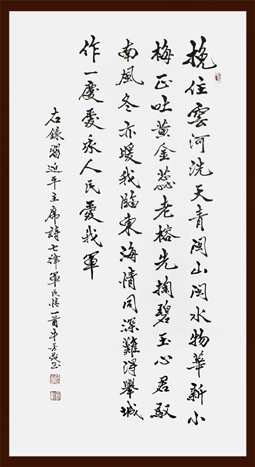 挽住雲河洗天青閩山閩水物華新小
梅正吐黄金蕊老榕先掬碧玉心君馭
南風冬亦暖我臨東海情同深難得舉城
作一慶愛我人民愛我軍
右錄習近平主席詩七律軍民情一首